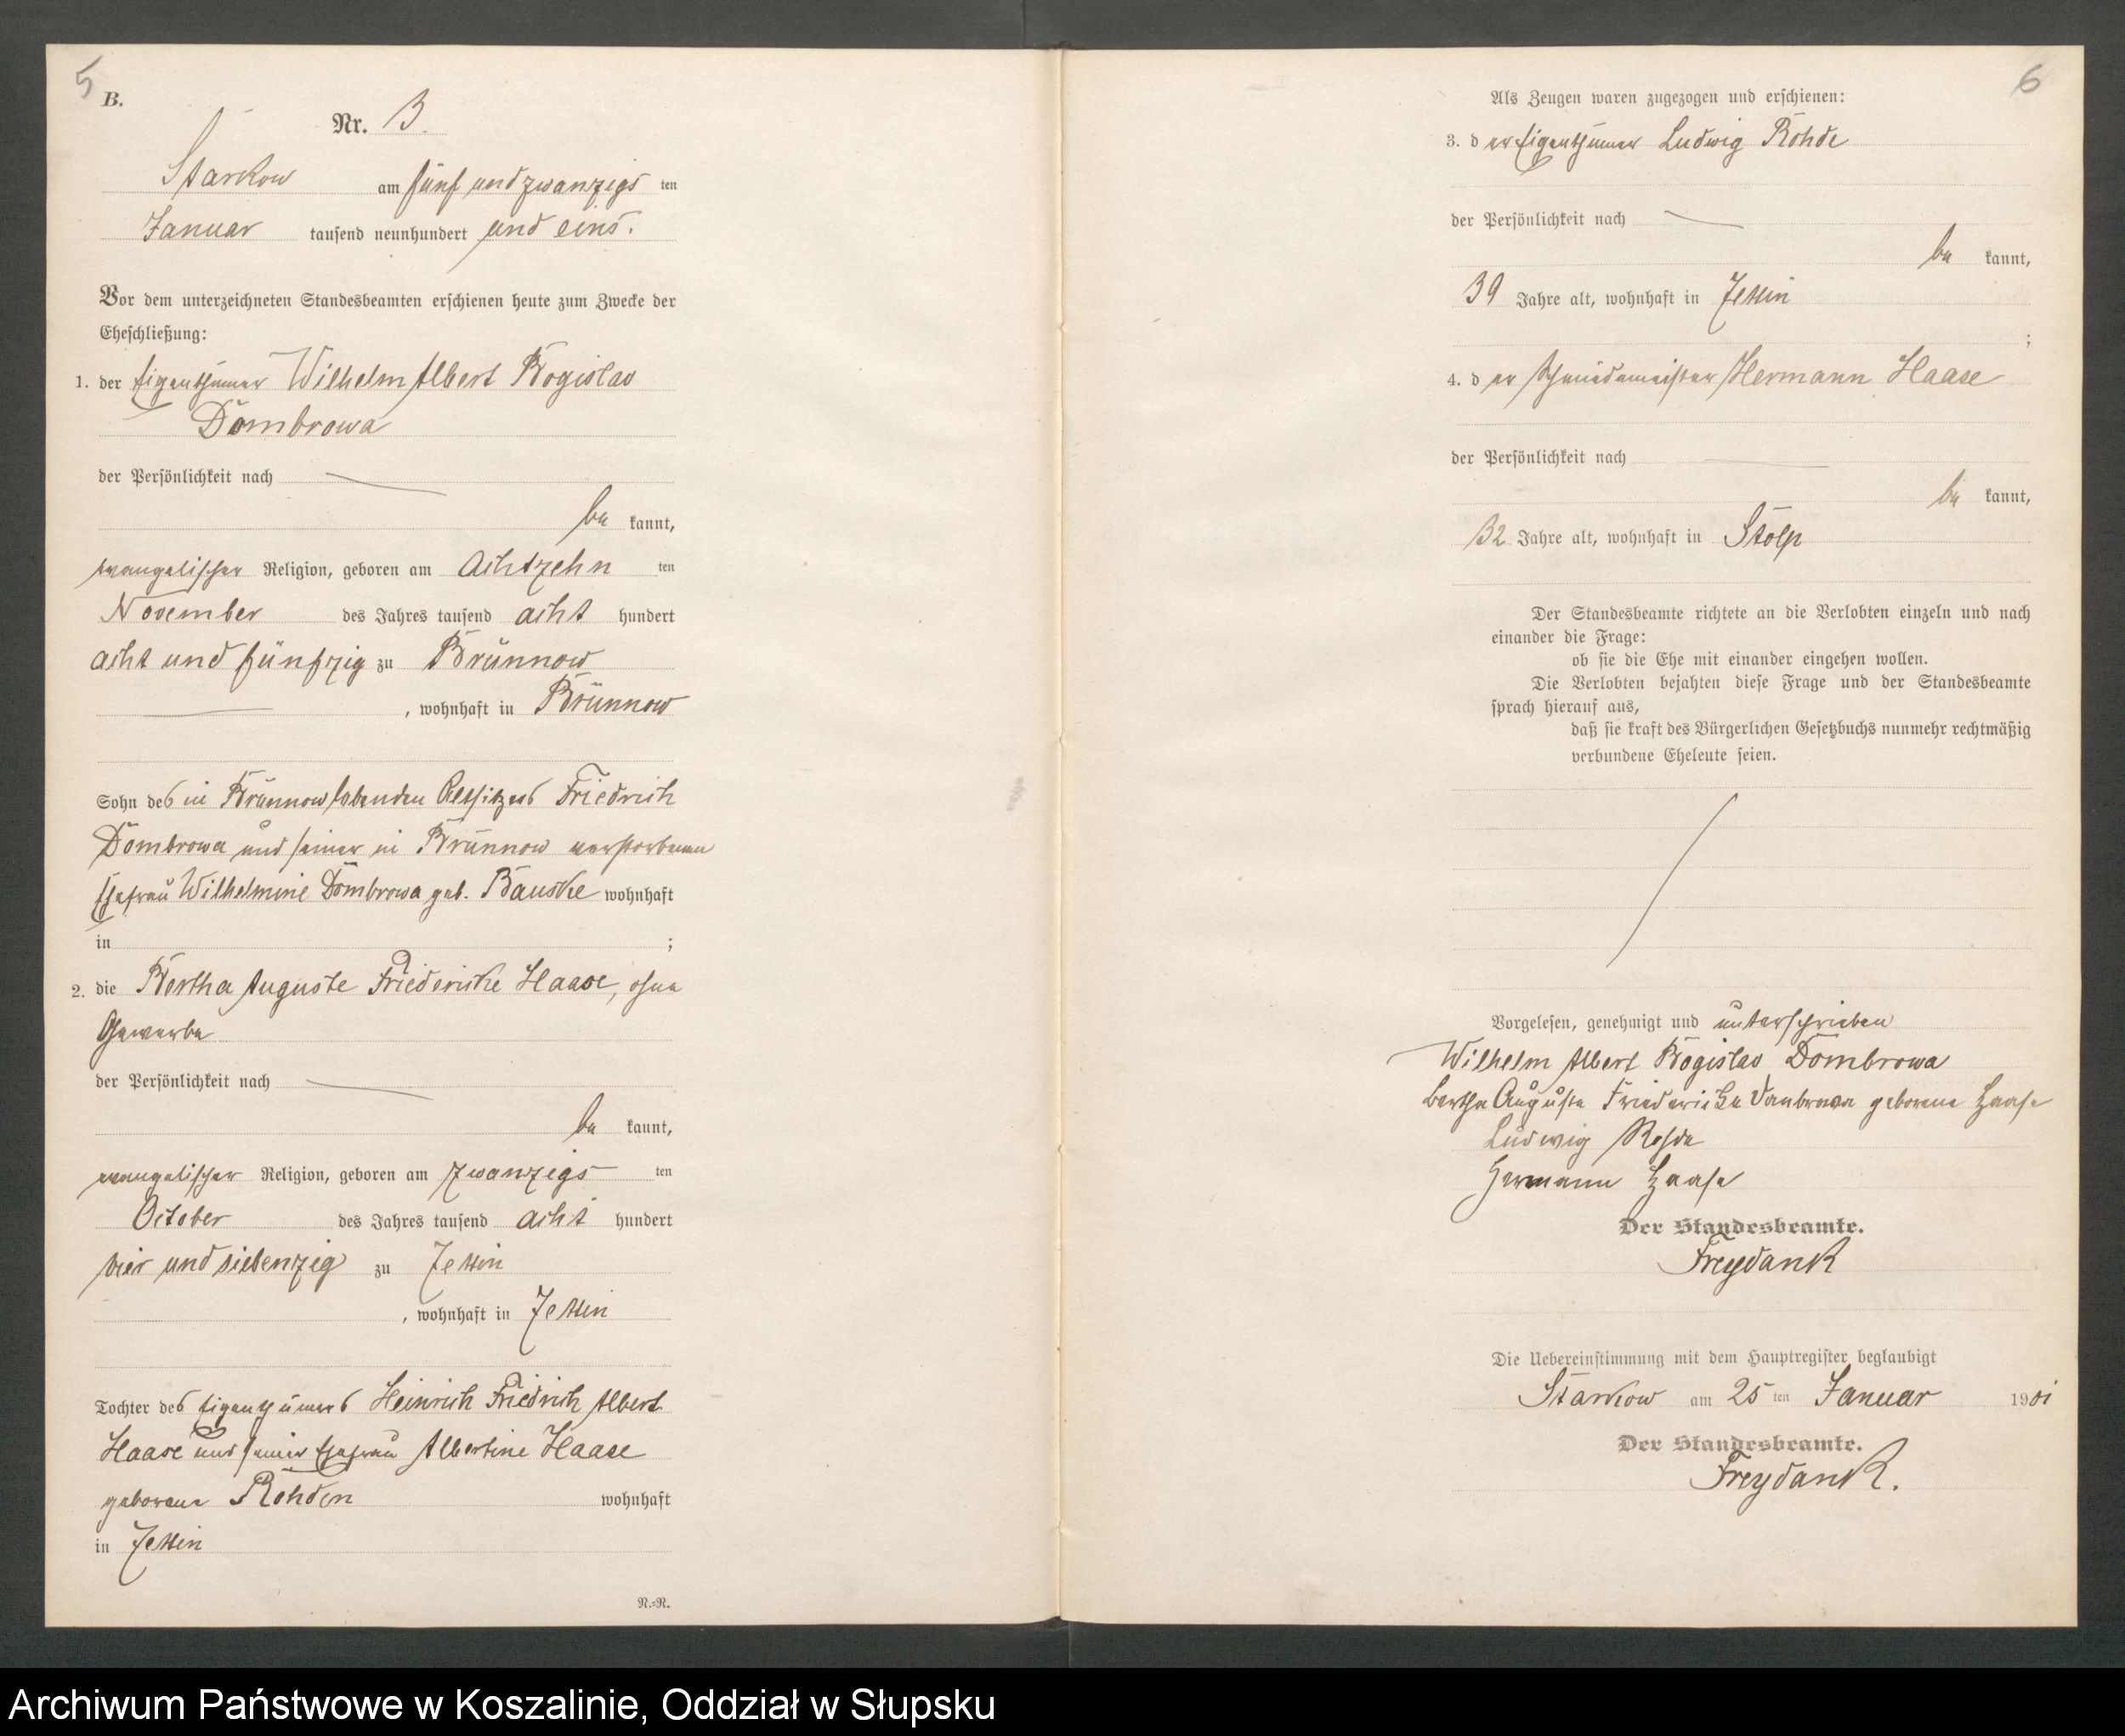 5
B.
Nr. 3.
Starkow am fünf und zwanzigs ten
Januar tausend neunhundert und eins.
Vor dem unterzeichneten Standesbeamten erschienen heute zum Zwecke der
Eheschließung:
1. der Eigenthümer Wilhelm Albert Bogislav
Dombrowa
der Persönlichkeit nach
be kannt,
evangelischer Religion, geboren am achtzehn ten
November des Jahres tausend acht hundert
acht und fünfzig zu Brünnow
, wohnhaft in Brünnow
Sohn des in Brünnow lebenden Altsitzers Friedrich
Dombrowa und seiner in Brünnow verstorbenen
Ehefrau Wilhelmine Dombrowa geb. Bauske wohnhaft
in ;
2. die Bertha Auguste Friederike Haase, ohne
Gewerbe
der Persönlichkeit nach
be kannt,
evangelischer Religion, geboren am zwanzigs ten
October des Jahres tausend acht hundert
vier und siebenzig zu Jessin
, wohnhaft in Jessin
Tochter des Eigenthümers Heinrich Friedrich Albert
Haase und seiner Ehefrau Albertine Haase
geborene Rohden wohnhaft
in Jessin
N.=N.
6
Als Zeugen waren zugezogen und erschienen:
3. d er Eigenthümer Ludwig Rohde
der Persönlichkeit nach
be kannt,
39 Jahre alt, wohnhaft in Jessin
;
4. d er Schmiedemeister Hermann Haase
der Persönlichkeit nach
be kannt,
32 Jahre alt, wohnhaft in Stolp
Der Standesbeamte richtete an die Verlobten einzeln und nach
einander die Frage:
ob sie die Ehe mit einander eingehen wollen.
Die Verlobten bejahten diese Frage und der Standesbeamte
sprach hierauf aus,
daß sie kraft des Bürgerlichen Gesetzbuchs nunmehr rechtmäßig
verbundene Eheleute seien.
Vorgelesen, genehmigt und unterschrieben
Wilhelm Albert Bogislav Dombrowa
Bertha Auguste Friederike Dombrowa geborene Haase
Ludwig Rohde
Hermann Haase
Der Standesbeamte.
Freydank
Die Uebereinstimmung mit dem Hauptregister beglaubigt
Starkow am 25 ten Januar 1901
Der Standesbeamte.
Freydank.
Archiwum Państwowe w Koszalinie, Oddział w Słupsku